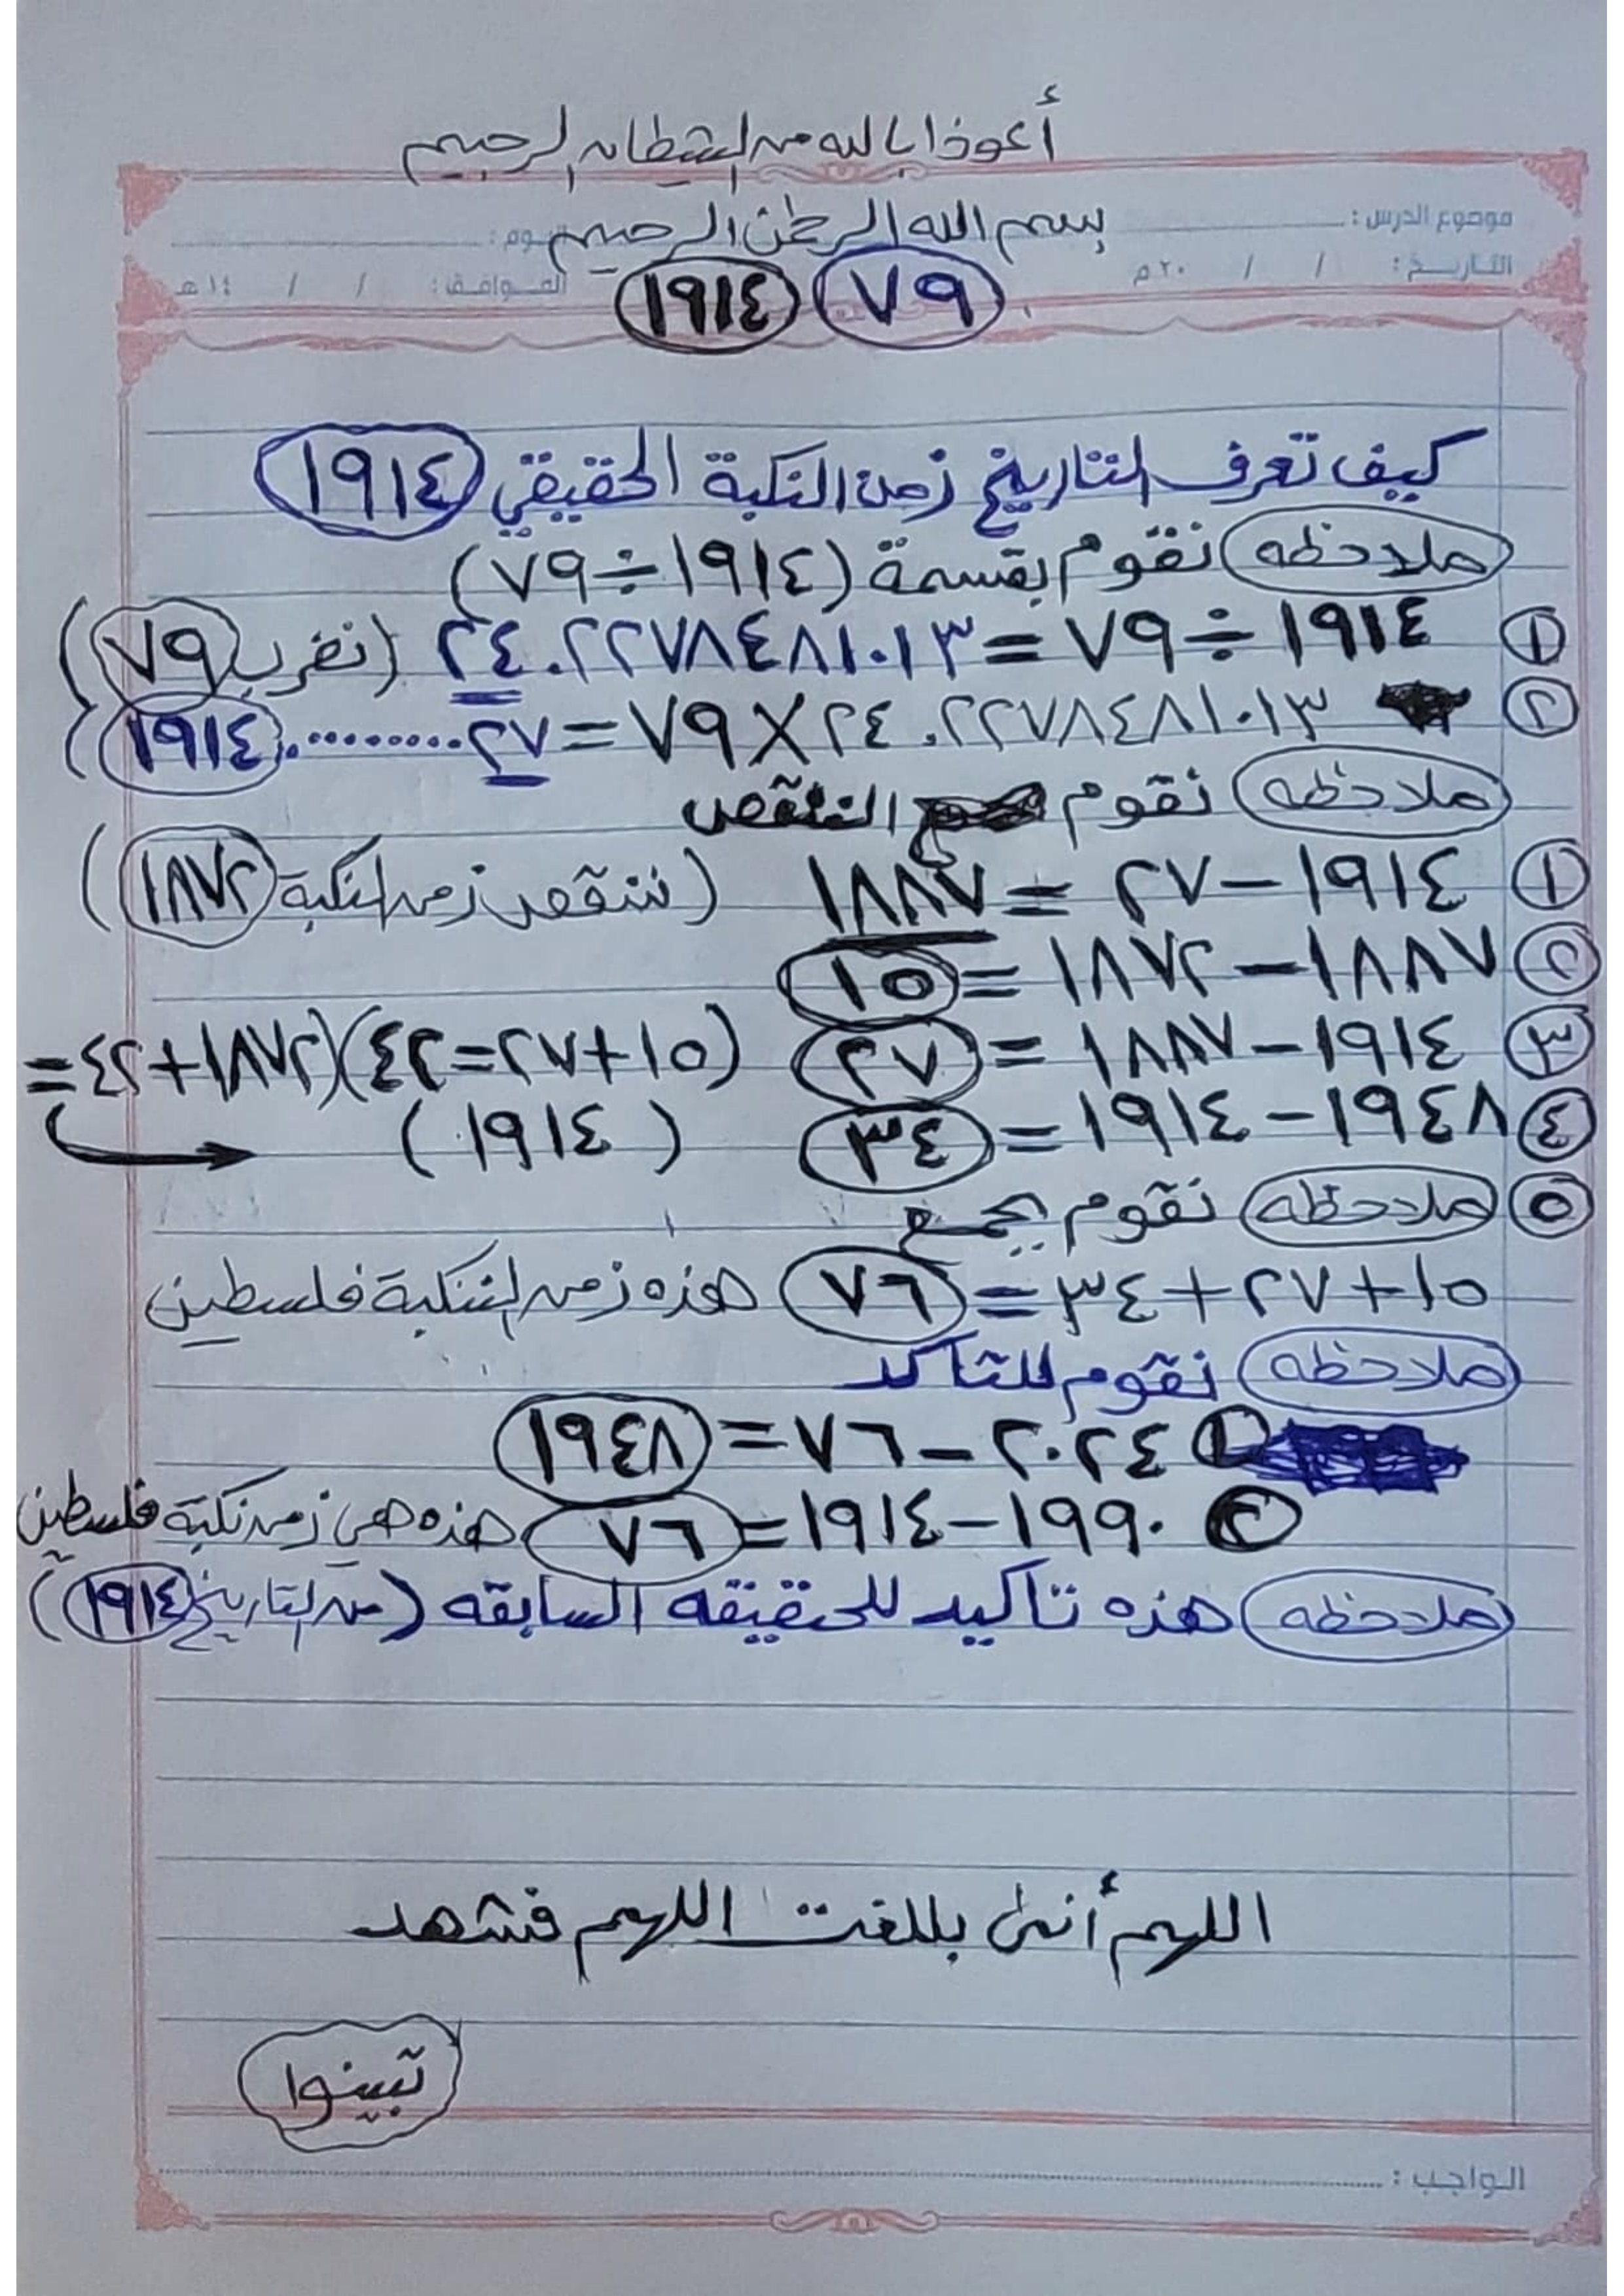 أعوذا بالله من الشيطان الرجيم
بسم الله الرحمن الرحيم
موضوع الدرس :
اليوم :
التاريخ : / / ٢٠ م
الموافق : / / ١٤ هـ
٧٩ ١٩١٤
كيف تعرف التاريخ زمن النكبة الحقيقي ١٩١٤
ملاحظه نقوم بقسمة (١٩١٤÷٧٩)
① ١٩١٤ ÷ ٧٩ = ٢٤.٢٢٧٨٤٨١٠١٣ (نضرب ٧٩)
② ٢٤.٢٢٧٨٤٨١٠١٣ × ٧٩ = ٢٧.......... ١٩١٤
ملاحظه نقوم النقص
① ١٩١٤ – ٢٧ = ١٨٨٧ (ننقص زمن النكبة ١٨٧٢)
② ١٨٨٧ – ١٨٧٢ = ١٥
③ ١٩١٤ – ١٨٨٧ = ٢٧ (١٥+٢٧=٤٢)(١٨٧٢+٤٢=
④ ١٩٤٨ – ١٩١٤ = ٣٤ (١٩١٤)
⑤ ملاحظه نقوم بجمع
١٥+٢٧+٣٤=٧٦ هذه زمن النكبة فلسطين
ملاحظه نقوم للتاكد
① ٢٠٢٤ – ٧٦ = ١٩٤٨
② ١٩٩٠ – ١٩١٤ = ٧٦ هذه هي زمن نكبة فلسطين
ملاحظه هذه تأكيد للحقيقه السابقه (من التاريخ ١٩١٤)
اللهم أنى بللغت اللهم فشهد
تبينوا
الواجب :